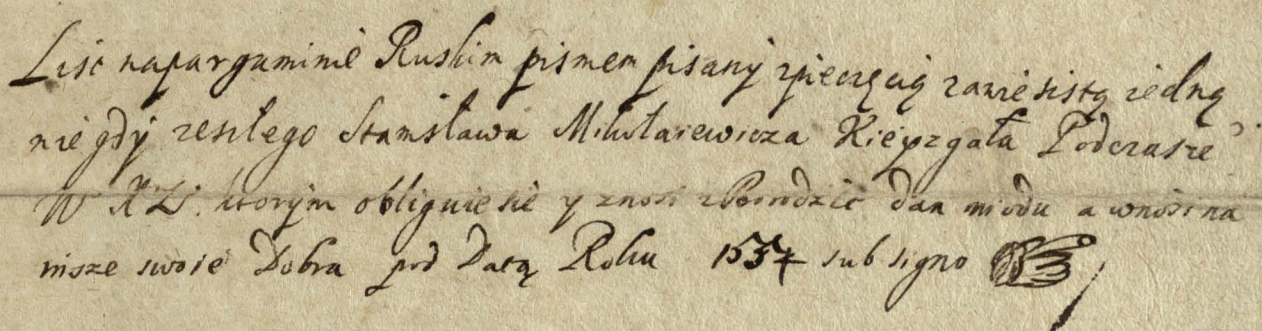 List na parguminie Ruskim pismem pisany zpieczęcią zawiesistą iedną
niegdy zeszłego Stanisława Mikołaiewicza Kieyzgała Podczasze°
W X L. ktorym obliguie sie y znosi z dan miodu a wnosi na
insze swoie Dobra pod Datą Roku 1534 sub signo